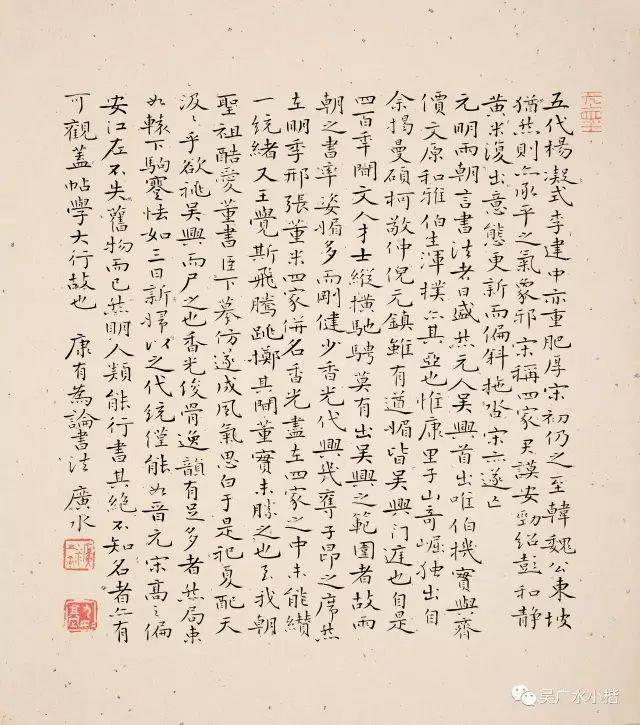 五代楊凝式李建中亦重肥厚宋初仍之至韓魏公東坡
猶然則亦承平之氣象邪宋稱四家君謨安勁紹彭和静
黄米復出意態更新而偏斜拖沓宋亦遂亡
元明兩朝言書法者日盛然元人吴興首出唯伯機實與齊
價文原和雅伯生渾撲亦其亞也惟康里子山奇崛独出自
余揭曼碩柯敬仲倪元鎮雖有遒媚皆吴興门庭也自是
四百年間文人才士縱横馳騁莫有出吴興之範圍者故兩
朝之書率姿媚多而剛健少香光代興幾奪子昂之席然
在明季邢張董米四家併名香光盡在四家之中未能纘
一統緒又王覺斯飛騰跳擲其間董實未勝之也至我朝
聖祖酷愛董書臣下摹仿遂成風氣思白于是祀夏配天
汲々乎欲祧吴興而尸之也香光俊骨逸韻有足多者然局束
如轅下駒蹇怯如三日新婦以之代統僅能如晉元宋高之偏
安江左不失舊物而已然明人類能行書其絶不知名者亦有
可觀蓋帖學大行故也 康有為論書法 廣水
吴广水小楷